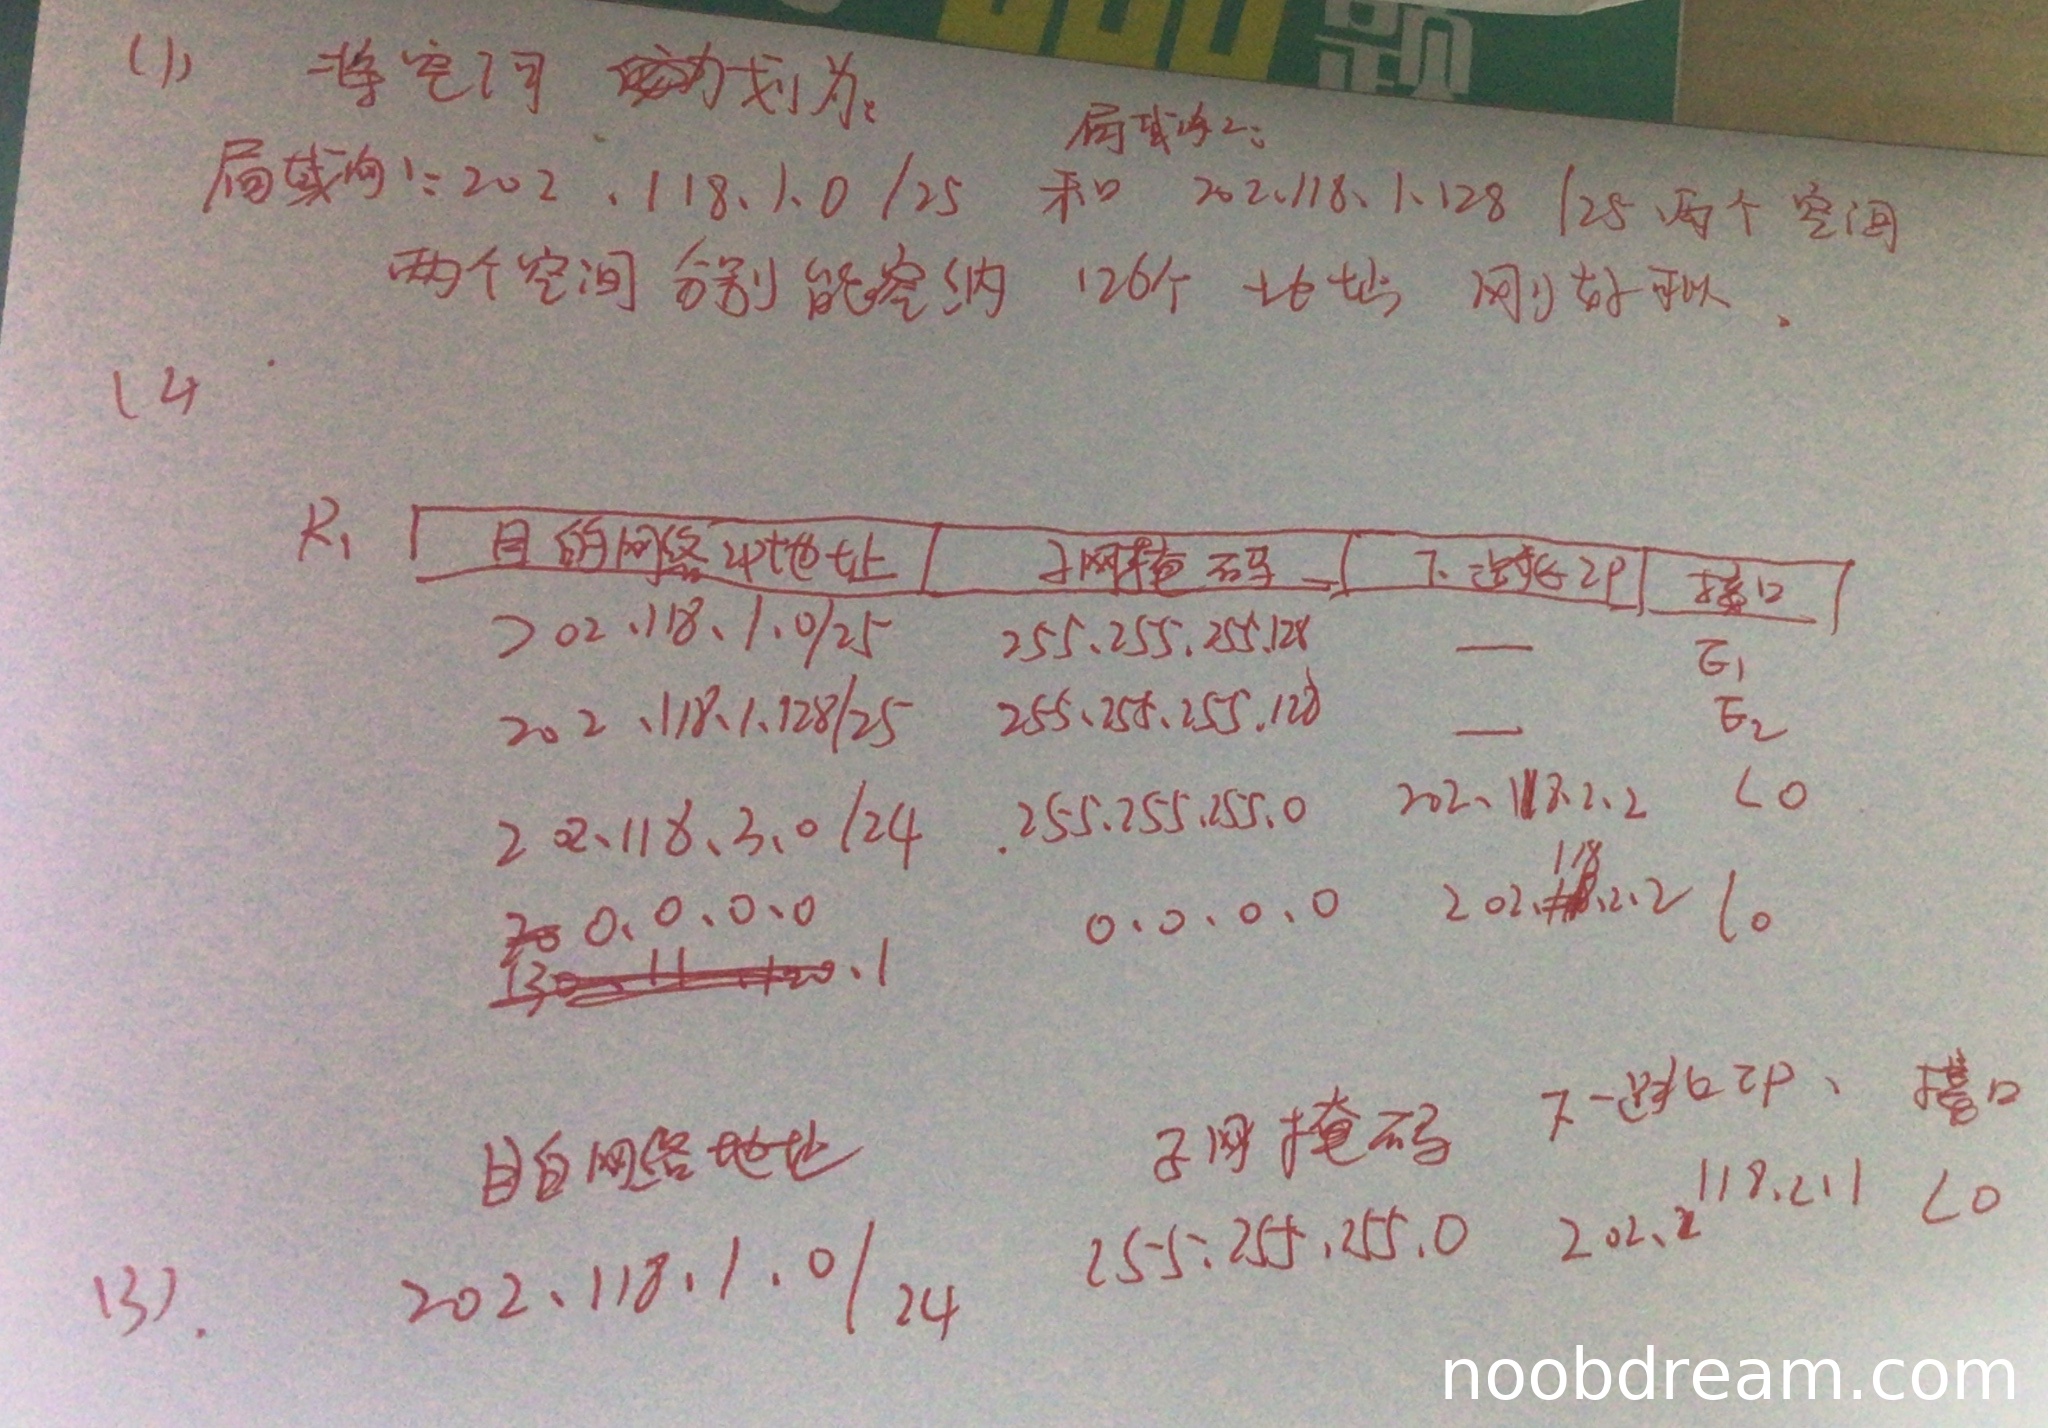 (1) 将空间 划为:
局域网1:202.118.1.0/25 和 局域网2: 202.118.1.128/25 两个空间
两个空间分别能容纳 126个 地址 刚好可以.
(2
R1 目的网络IP地址 子网掩码 下一跳IP 接口
202.118.1.0/25 255.255.255.128 — E1
202.118.1.128/25 255.255.255.128 — E2
202.118.3.0/24 255.255.255.0 202.118.2.2 L0
0.0.0.0 0.0.0.0 202.118.2.2 L0
130.11.120.1
目的网络地址 子网掩码 下一跳IP、 接口
(3). 202.118.1.0/24 255.255.255.0 202.118.2.1 L0
noobdream.com